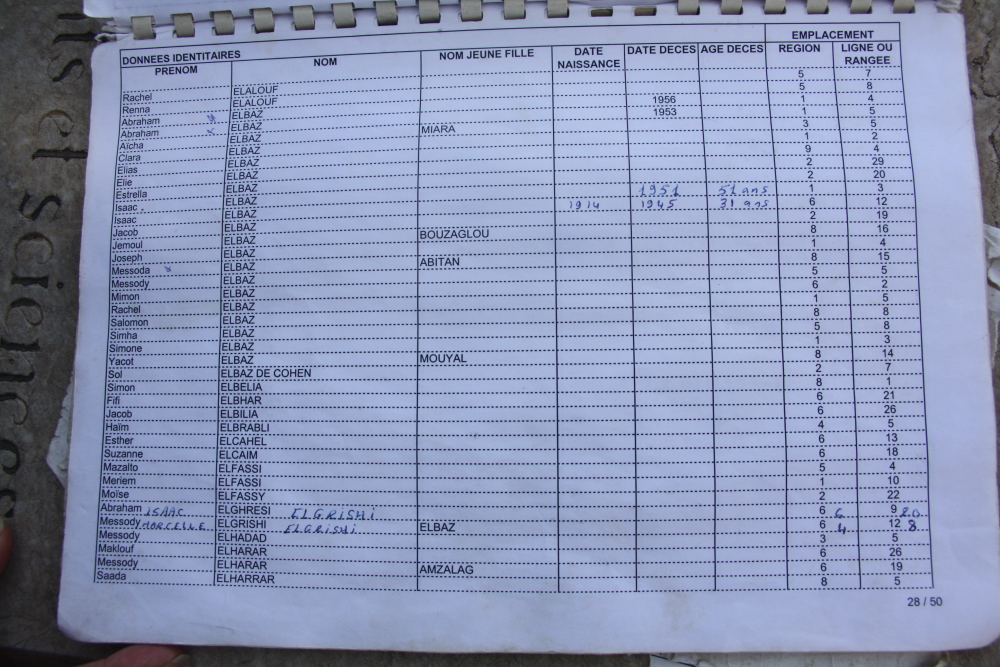 DONNEES IDENTITAIRES EMPLACEMENT
PRENOM NOM NOM JEUNE FILLE DATE NAISSANCE DATE DECES AGE DECES REGION LIGNE OU RANGEE
Rachel ELALOUF 5 7
Renna ELALOUF 5 8
Abraham ELBAZ 1956 1 4
Abraham x ELBAZ 1953 1 5
Aïcha ELBAZ MIARA 3 5
Clara ELBAZ 1 2
Elias ELBAZ 9 4
Elie ELBAZ 2 29
Estrella ELBAZ 2 20
Isaac ELBAZ 1951 51 ans 1 3
Isaac ELBAZ 1914 1945 31 ans 6 12
Jacob ELBAZ 2 19
Jemoul ELBAZ BOUZAGLOU 8 16
Joseph ELBAZ 1 4
Messoda x ELBAZ ABITAN 8 15
Messody ELBAZ 5 5
Mimon ELBAZ 6 2
Rachel ELBAZ 1 5
Salomon ELBAZ 8 8
Simha ELBAZ 5 8
Simone ELBAZ 1 3
Yacot ELBAZ MOUYAL 8 14
Sol ELBAZ DE COHEN 2 7
Simon ELBELIA 8 1
Fifi ELBHAR 6 21
Jacob ELBILIA 6 26
Haïm ELBRABLI 4 5
Esther ELCAHEL 6 13
Suzanne ELCAIM 6 18
Mazalto ELFASSI 5 4
Meriem ELFASSI 1 10
Moïse ELFASSY 2 22
Abraham ISAAC ELGHRESI ELGRISHI 6 6 9 20
Messody MARCELLE ELGRISHI ELGRISHI ELBAZ 6 4 12 8
Messody ELHADAD 3 5
Maklouf ELHARAR 6 26
Messody ELHARAR AMZALAG 6 19
Saada ELHARRAR 8 5
28 / 50
et sciences